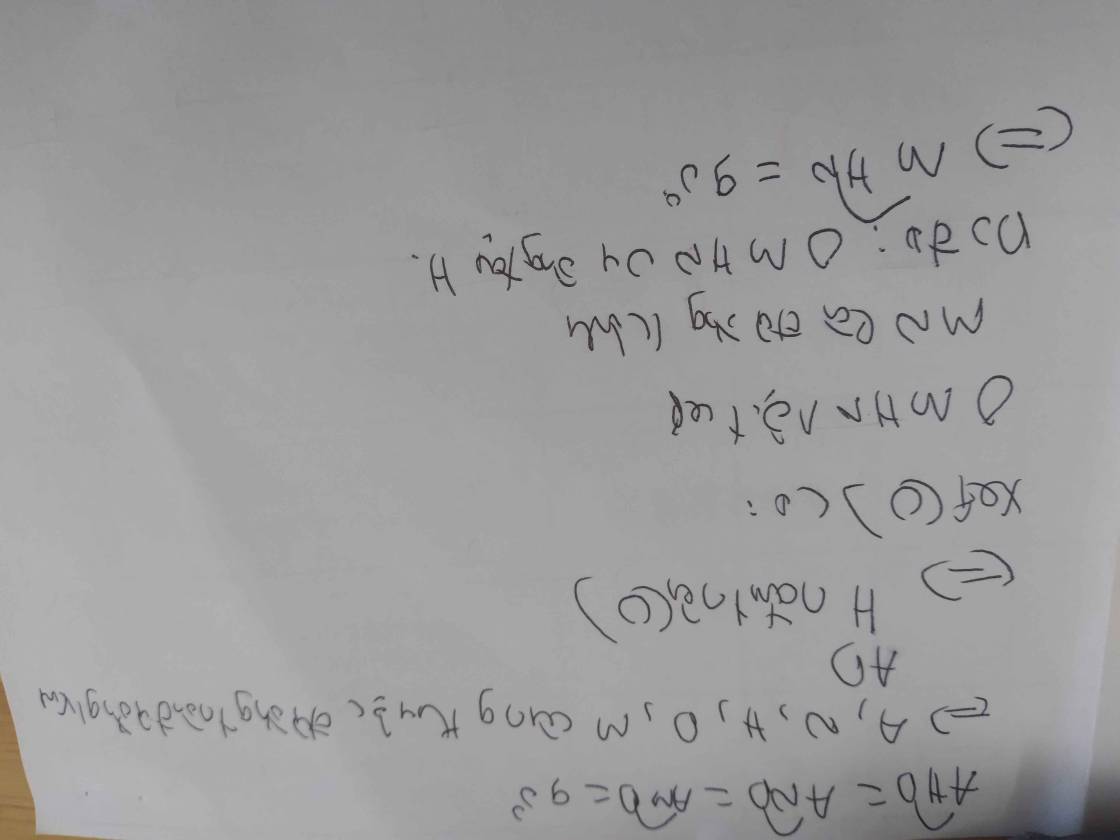 AHD = AND = AMD = 90°
=> A, N, H, D, M cùng thuộc đường tròn đường kính
AD
(=) H nằm trên (O)
Xét (O) có:
Δ MHN nội tiếp
MN là đường kính
Do đó: Δ MHN vuông tại H.
(=) MHN = 90°